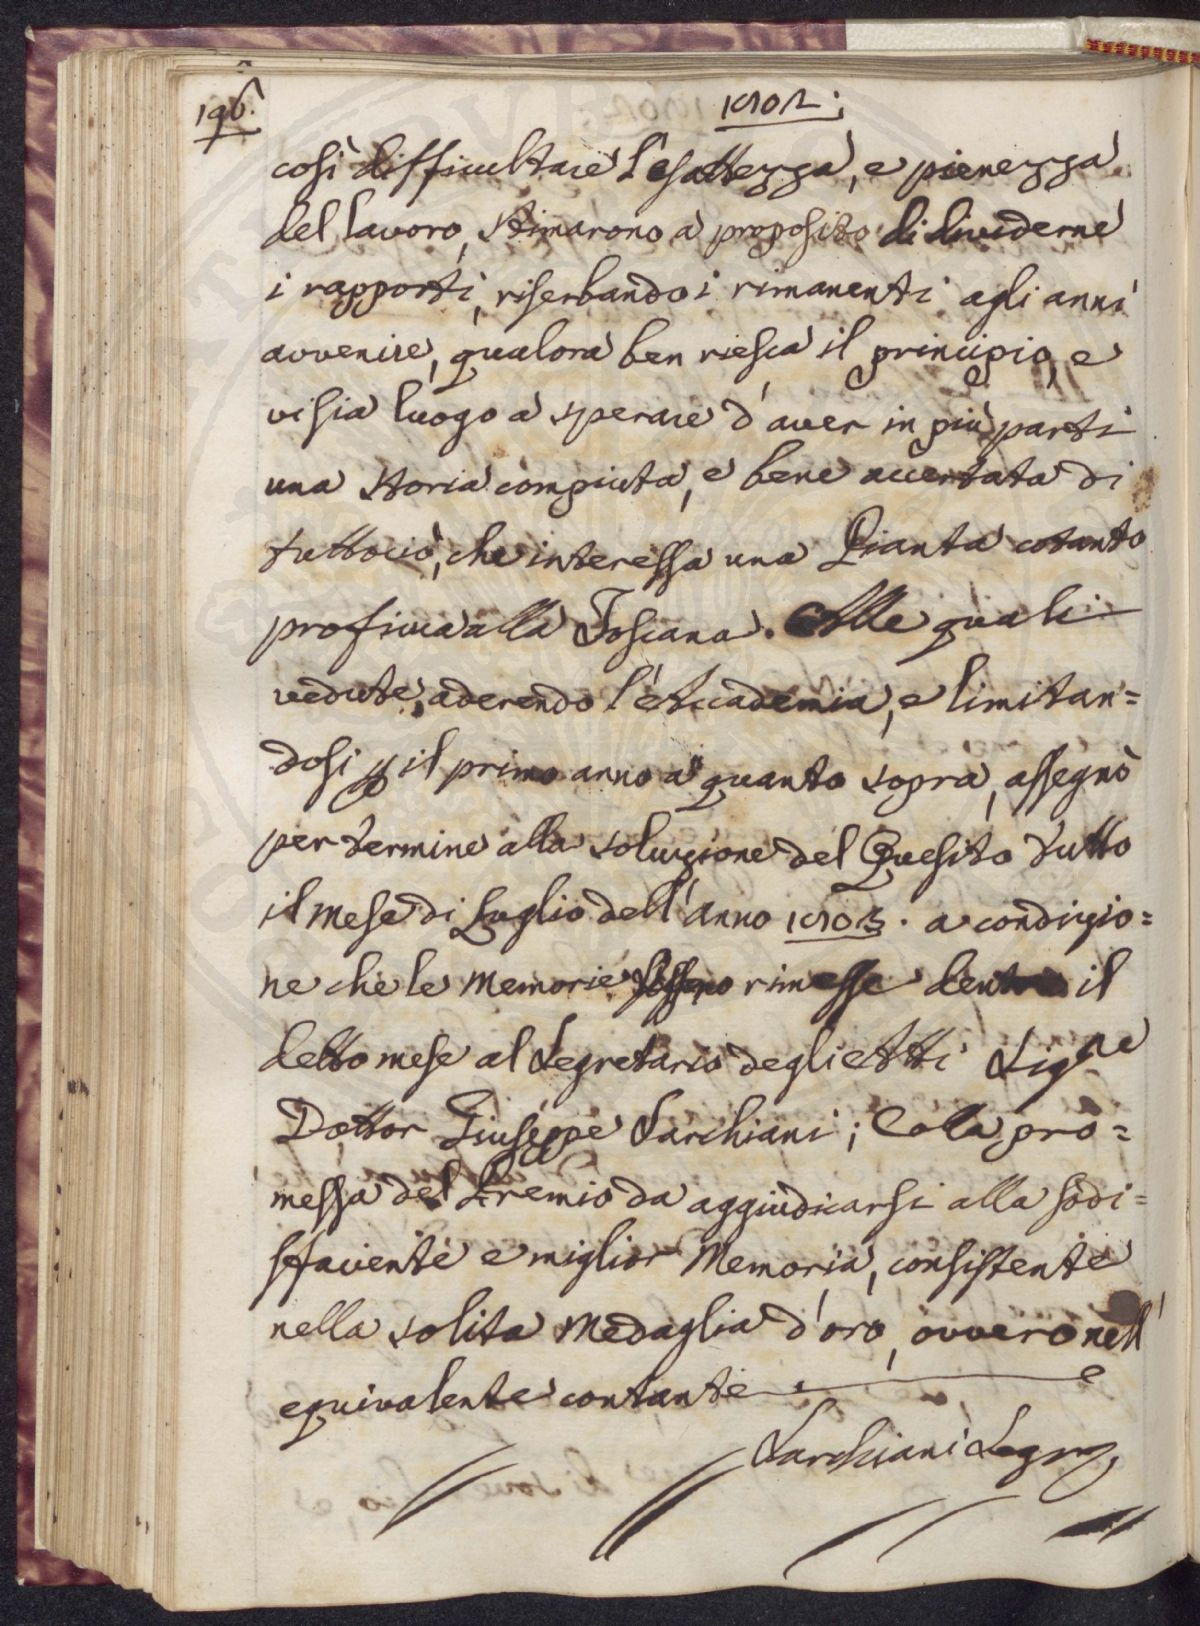 196.
1802.
così difficultare l'esattezza, e pienezza
del lavoro, stimarono a proposito di dividerne
i rapporti, riserbando i rimanenti agli anni
avvenire, qualora ben riesca il principio, e
vi sia luogo a sperare d'aver in più parti
una storia compiuta, e bene accertata di
tuttociò, che interessa una Pianta cotanto
proficua alla Toscana. Alle quali
vedute, aderendo l'Accademia, e limitan=
dosi p il primo anno a quanto sopra, assegnò
per termine alla soluzione del Quesito tutto
il mese di Luglio dell'anno 1803. a condizio=
ne che le Memorie sieno rimesse dentro il
detto mese al Segretario degli Atti Sigre
Dottor Giuseppe Sarchiani; Colla pro=
messa del Premio da aggiudicarsi alla sodi=
sfaciente e miglior Memoria, consistente
nella solita Medaglia d'oro, ovvero nell'
equivalente contante.
Sarchiani Segro